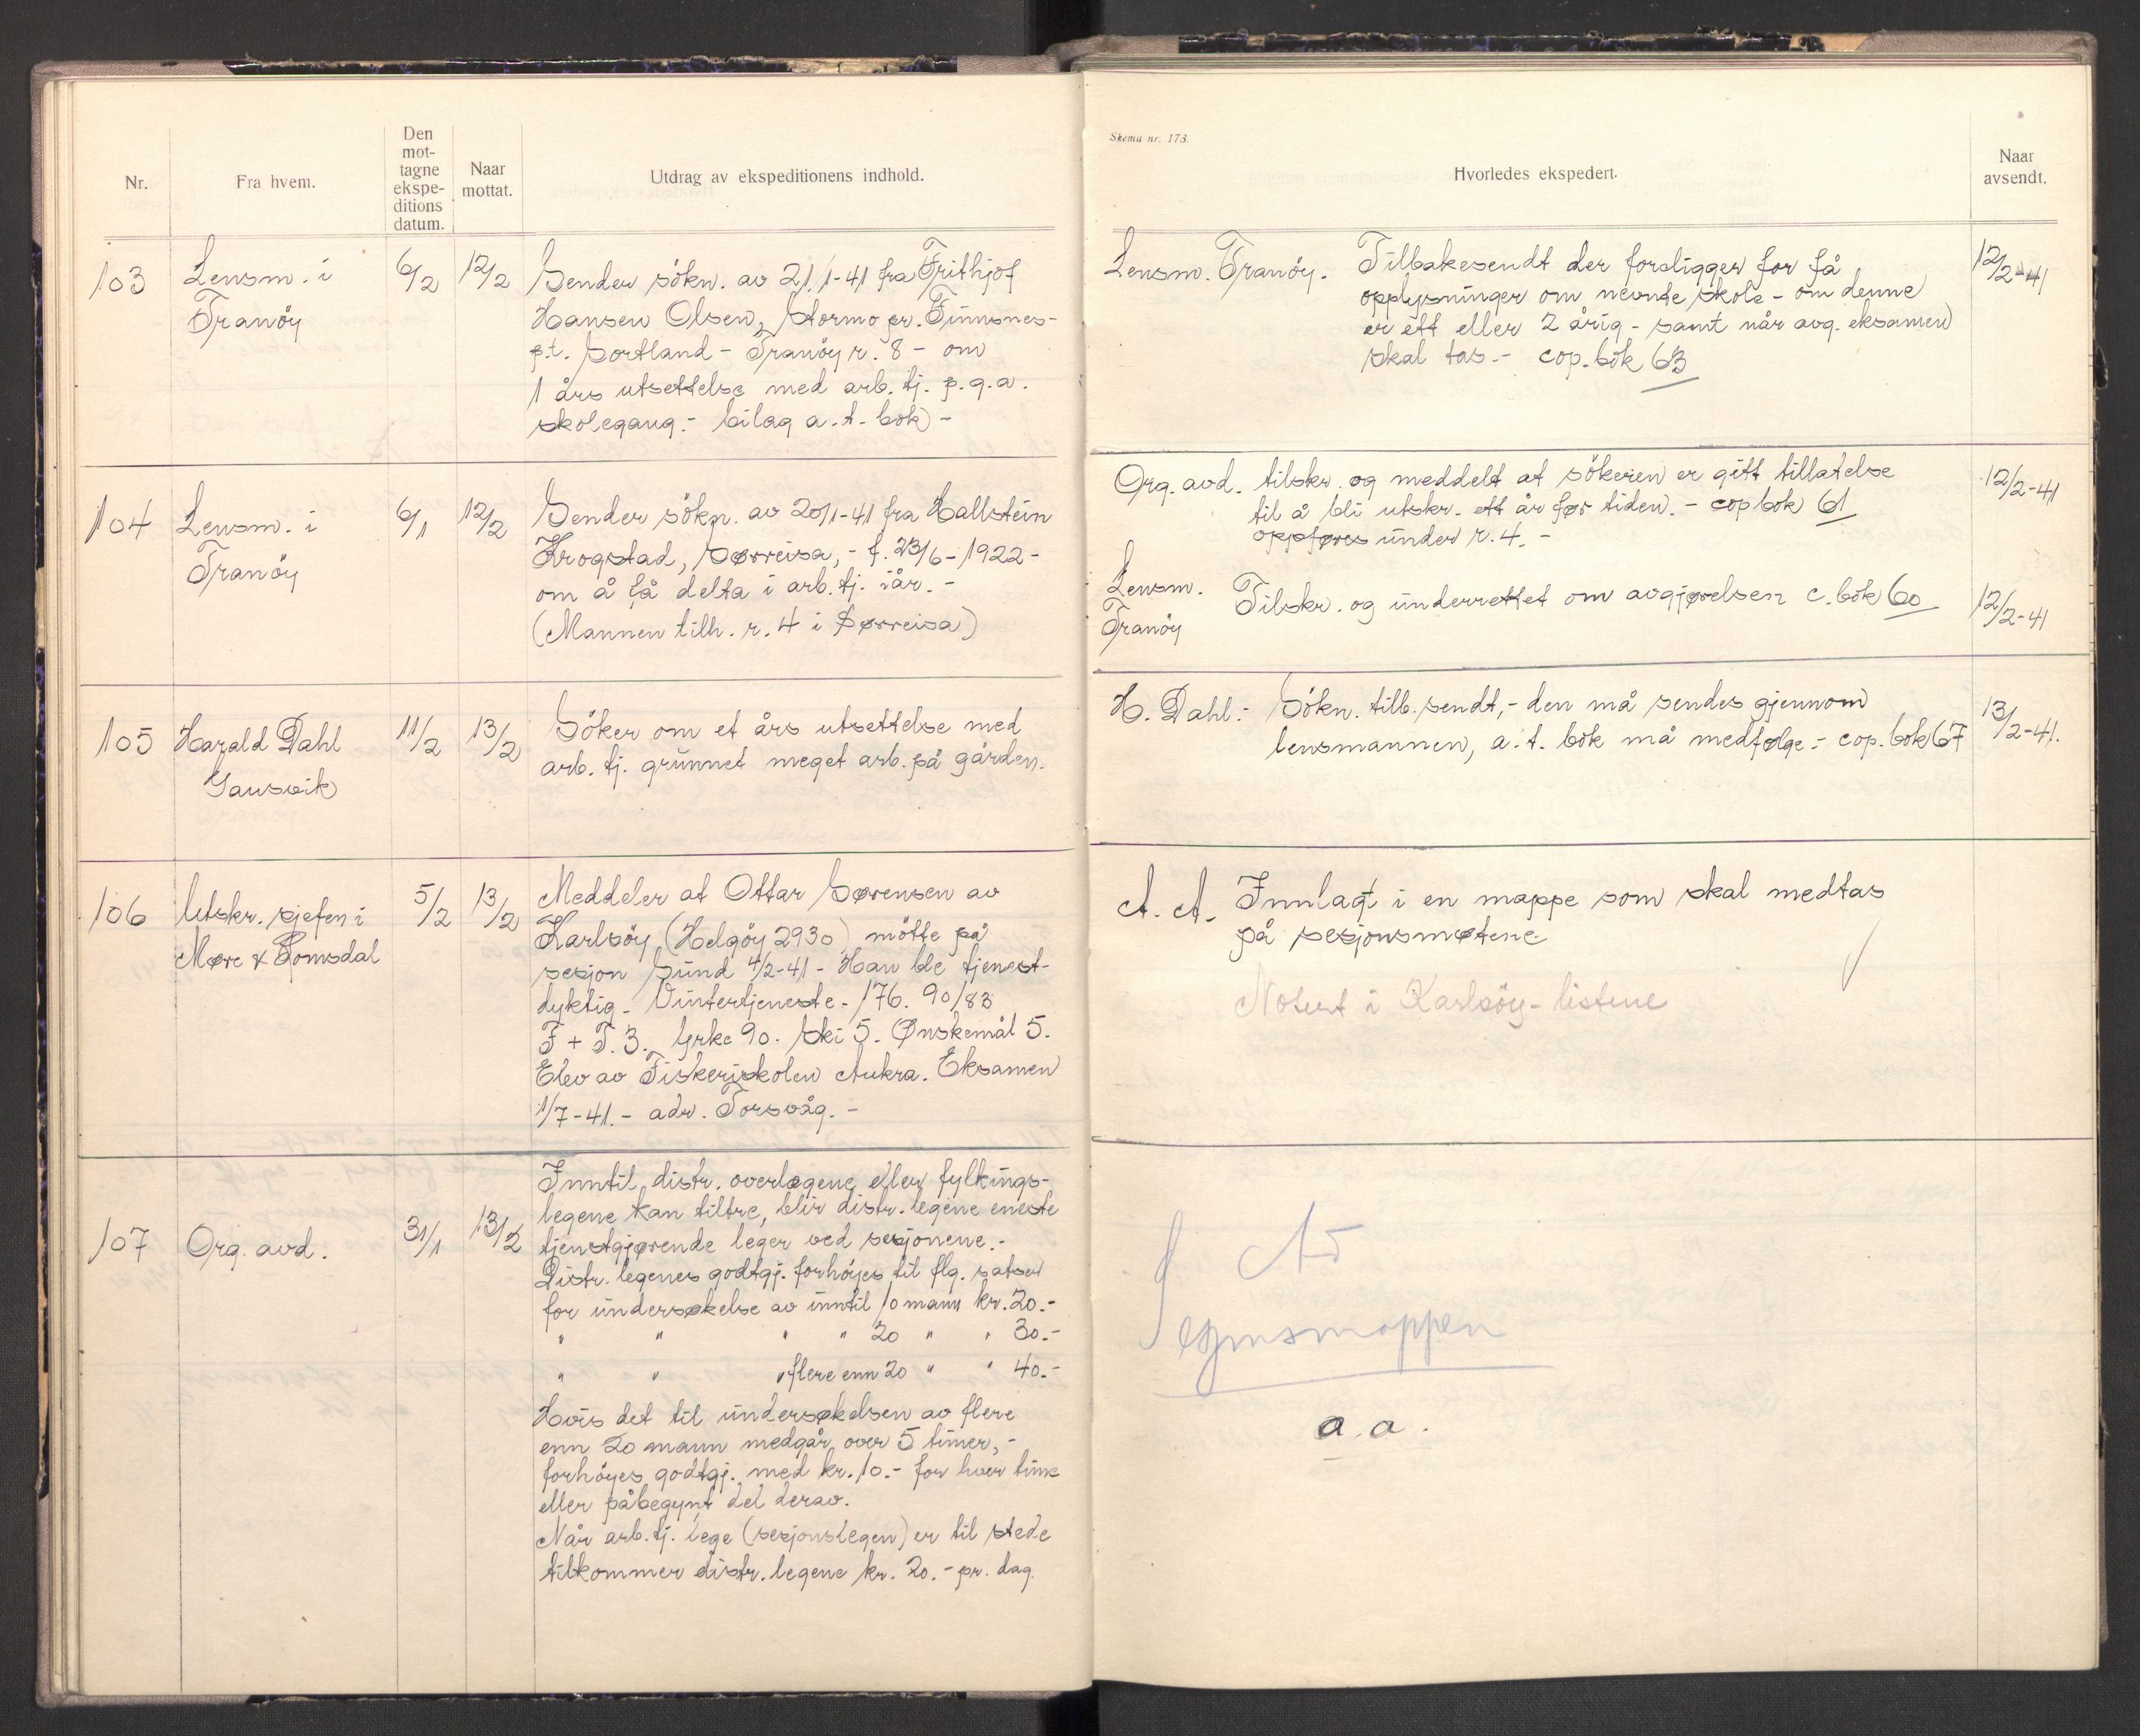 Nr.
Fra hvem.
Den
mot-
tagne
ekspe-
ditions
datum.
Naar
mottat.
Utdrag av ekspeditionens indhold.
103
Lensm. i
Tranöy
6/2
12/2
Sender sökn. av 21/1-41 fra Frithjof
Hansen Olsen, Stormo pr. Finnsnes-
p.t. Sortland - Tranöy r. 8 - om
1 års utsettelse med arb. tj. p.g.a.
skolegang. - bilag a.t. bok) -
104
Lensm. i
Tranöy
6/1
12/2
Sender sökn. av 20/1-41 fra Hallstein
Krogstad, Sørreisa, - f. 23/6-1922 -
om å få delta i arb. tj. iår. -
(Mannen tilh. r. 4 i Sørreisa)
105
Harald Dahl
Gausvik
11/2
13/2
Söker om et års utsettelse med
arb. tj. grunnet meget arb. på gården.
106
Utskr. sjefen i
Møre & Romsdal
5/2
13/2
Meddeler at Ottar Sørensen av
Karlsöy (Helgöy 2930) mötte på
sesjon Sund 4/2-41 - Han ble tjenest-
dyktig. Vintertjeneste - 176. 90/83
F + T. 3. Yrke 90. Ski 5. Ønskemål 5.
Elev av Fiskeriskolen Aukra. Eksamen
1/7-41. - adr. Torsvåg. -
107
Org. avd.
31/1
13/2
Inntil distr. overlegene eller fylkings-
legene kan tiltre, blir distr. legene eneste
tjenestgjørende leger ved sesjonene. -
Distr. legenes godtgj. forhöyes til flg. satser
for undersøkelse av inntil 10 mann kr. 20.-
" " " " 20 " " 30.-
" " " flere enn 20 " " 40.-
Hvis det til undersøkelsen av flere
enn 20 mann medgår over 5 timer, -
forhöyes godtgj. med kr. 10.- for hver time
eller påbegynt del derav.
Når arb. tj. lege (sesjonslegen) er til stede
tilkommer distr. legene kr. 20.- pr. dag.
Skema nr. 173.
Hvorledes ekspedert.
Naar
avsendt.
Lensm. Tranöy.
Tilbakesendt der foreligger for få
opplysninger om nevnte skole - om denne
er ett eller 2 årig - samt når avg. eksamen
skal tas. - cop. bok 63
12/2-41
Org. avd. tilskr. og meddelt at sökeren er gitt tillatelse
til å bli utskr. ett år før tiden. - cop bok 61
oppføres under r. 4. -
12/2-41
Lensm.
Tranöy
Tilskr. og underrettet om avgjørelsen c. bok 60
12/2-41
H. Dahl: - Sökn. tilb. sendt, - den må sendes gjennom
lensmannen, a.t. bok må medfølge. - cop. bok 67
13/2-41.
A. A. Innlagt i en mappe som skal medtas
på sesjonsmøtene
Notert i Karlsöy-listene
a. a.